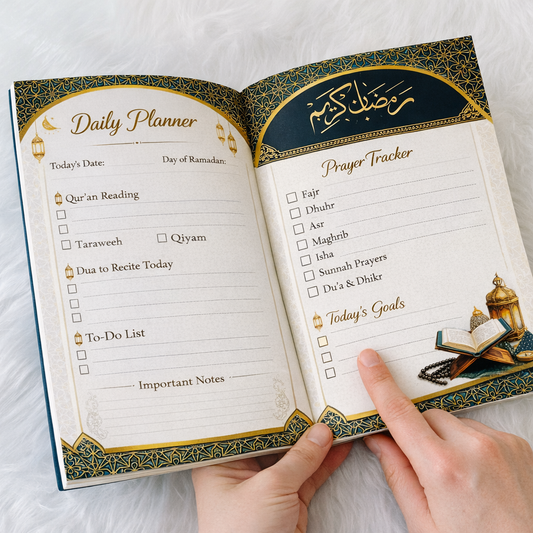 Daily Planner
Today's Date: Day of Ramadan:
Qur'an Reading
Taraweeh Qiyam
Dua to Recite Today
To-Do List
Important Notes
رمضان كريم
Prayer Tracker
Fajr
Dhuhr
Asr
Maghrib
Isha
Sunnah Prayers
Du'a & Dhikr
Today's Goals